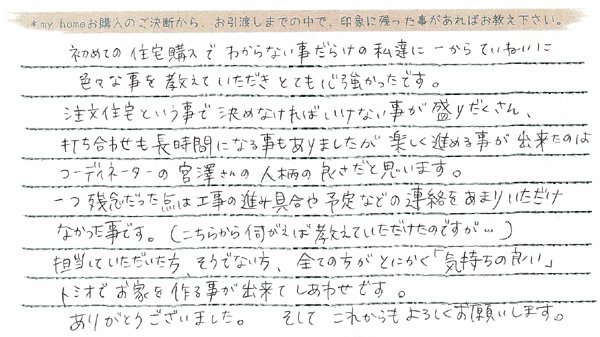 *my homeお購入のご決断から、お引渡しまでの中で、印象に残った事があればお教え下さい。
初めての住宅購入でわからない事だらけの私達に一からていねいに
色々な事を教えていただきとても心強かったです。
注文住宅という事で決めなければいけない事が盛りだくさん、
打ち合わせも長時間になる事もありましたが楽しく進める事が出来たのは
コーディネーターの宮澤さんの人柄の良さだと思います。
一つ残念だった点は工事の進み具合や予定などの連絡をあまりいただけ
なかった事です。(こちらから伺がえば教えていただけたのですが…)
担当していただいた方、そうでない方、全ての方がとにかく「気持ちの良い」
トミオでお家を作る事が出来てしあわせです。
ありがとうございました。 そして これからもよろしくお願いします。